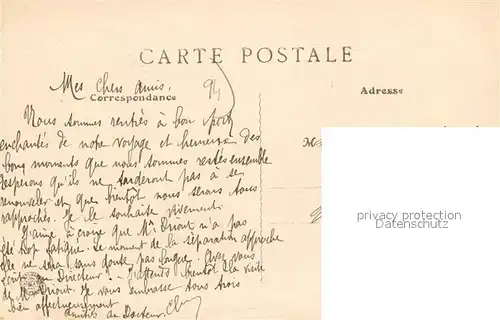 CARTE POSTALE
94
Mes Chers amis,
Correspondance
Adresse
Nous sommes rentrés à bon port
enchantés de notre voyage et heureux des
bons moments que nous sommes restés ensemble
Espérons qu'ils ne tarderont pas à se
renouveler et que bientôt nous serons tous
rapprochés. Je le souhaite vivement.
J'aime à croire que Mr Driout n'a pas
été trop fatigué. Le moment de la séparation approche
elle ne sera sans doute pas longue. Avez vous
écrit au Directeur? - J'attends bientôt la visite
de Mr Driout. Je vous embrasse tous trois
bien affectueusement
amitiés au Docteur.
privacy protection
oldthing.de